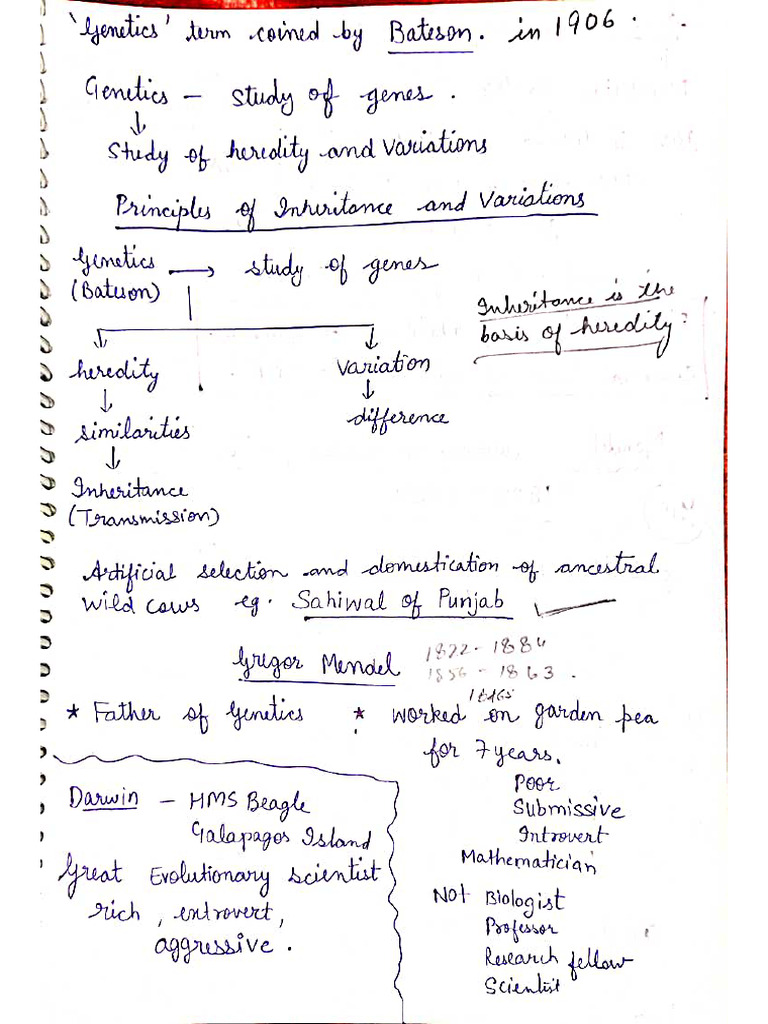 'Genetics' term coined by Bateson. in 1906.
Genetics — study of genes.
↓
Study of heredity and variations
Principles of Inheritance and Variations
Genetics → study of genes
(Bateson)
Inheritance is the
basis of heredity
heredity variation
↓ ↓
similarities difference
↓
Inheritance
(Transmission)
Artificial selection and domestication of ancestral
wild cows eg. Sahiwal of Punjab
Gregor Mendel 1822-1884
1856 - 1863.
* Father of Genetics * worked on garden pea
for 7 years.
Poor
Submissive
Introvert
Mathematician
Not Biologist
Professor
Research fellow
Scientist
Darwin — HMS Beagle
Galapagos Island
Great Evolutionary scientist
rich, entrovert,
aggressive.